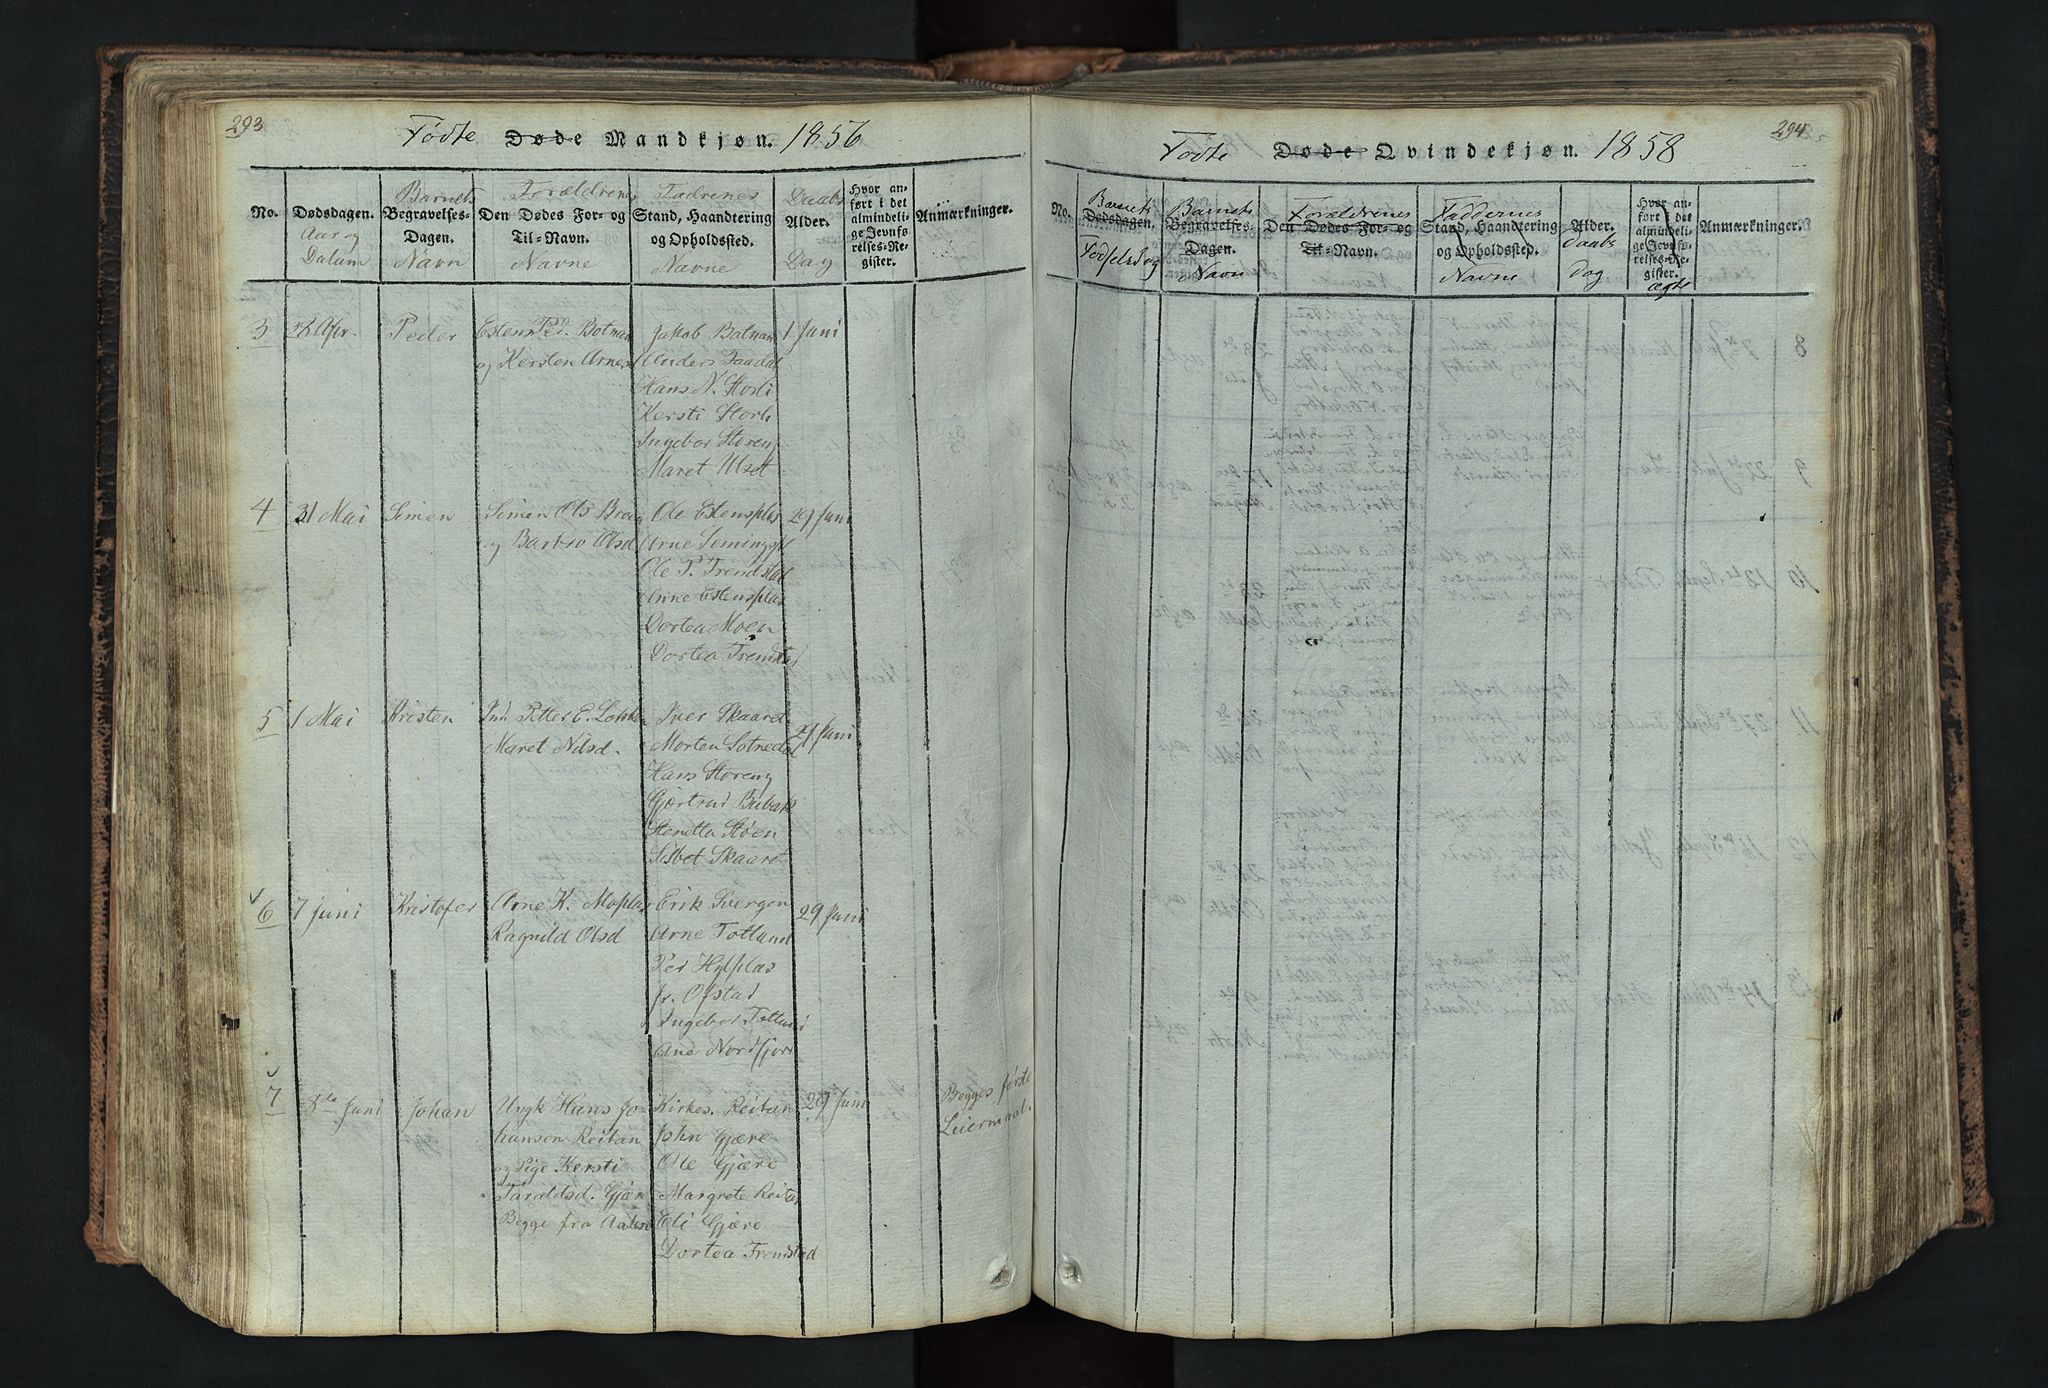 293
Fødte Døde Mandkjøn. 1856
No.
Dødsdagen.
Aar og
Datum
Barnets
Begravelses-
Dagen.
Navn
Forældrenes
Den Dødes For- og
Til-Navn.
Navne
Fadrenes
Stand, Haandtering
og Opholdssted.
Navne
Daabs
Alder.
Dag
Hvor an-
ført i det
almindeli-
ge Jevnfø-
relses-Re-
gister.
Anmærkninger.
3
Apr.
Peder
Esten Ped. Botnan
og Kersten Arnesd
Jakob Botnan
Anders Aaadal
Hans N. Storli
Kersti Storli
Ingebor Storeng
Maret Ulset
1 Juni
4
31 Mai
Semen
Semen Ols
og Barbro Olsd
Ole Estensplas
Arne
Ole P. Trendstad
Anne Estensplas
Dortea Moen
Dortea Trendstad
29 Juni
5
1 Mai
Kristen
Petter E. Lokken
Maret Nilsd.
Iver Skaaret
Morten Sotnedal
Hans Storeng
Gjertrud Bubak
Stenetta Støen
Lisbet Skaaret
29 Juni
6
7 juni
Kristofer
Arne K. Moplas
Ragnild Olsd
Erik Svergen
Arne Totland
Per Hylplas
fr. Ofstad
Ingebor Totland
Ane Nordfjord
29 Juni
7
8de Juni
Johan
Ungk Hans Jo-
hansen Reitan
og Pige Kersti
Taraldsd. Gjære
Begge fra Aalen
Kirkes. Reitan
John Gjære
Ole Gjære
Margrete Reitan
Eli Gjære
Dortea Trendstad
29 Juni
Begges første
Leiermaal.
294
Fødte Døde Qvindekjøn. 1858
No.
Barnets
Dødsdagen.
Fødselsdag
Barnets
Begravelses-
Dagen.
Navn
Forældrenes
Den Dødes For- og
Til-Navn.
Faddernes
Stand, Haandtering
og Opholdssted.
Navne
Alder.
Daabs
dag
Hvor an-
ført i det
almindeli-
ge Jevnfø-
relses-Re-
gister.
ægte
Anmærkninger.